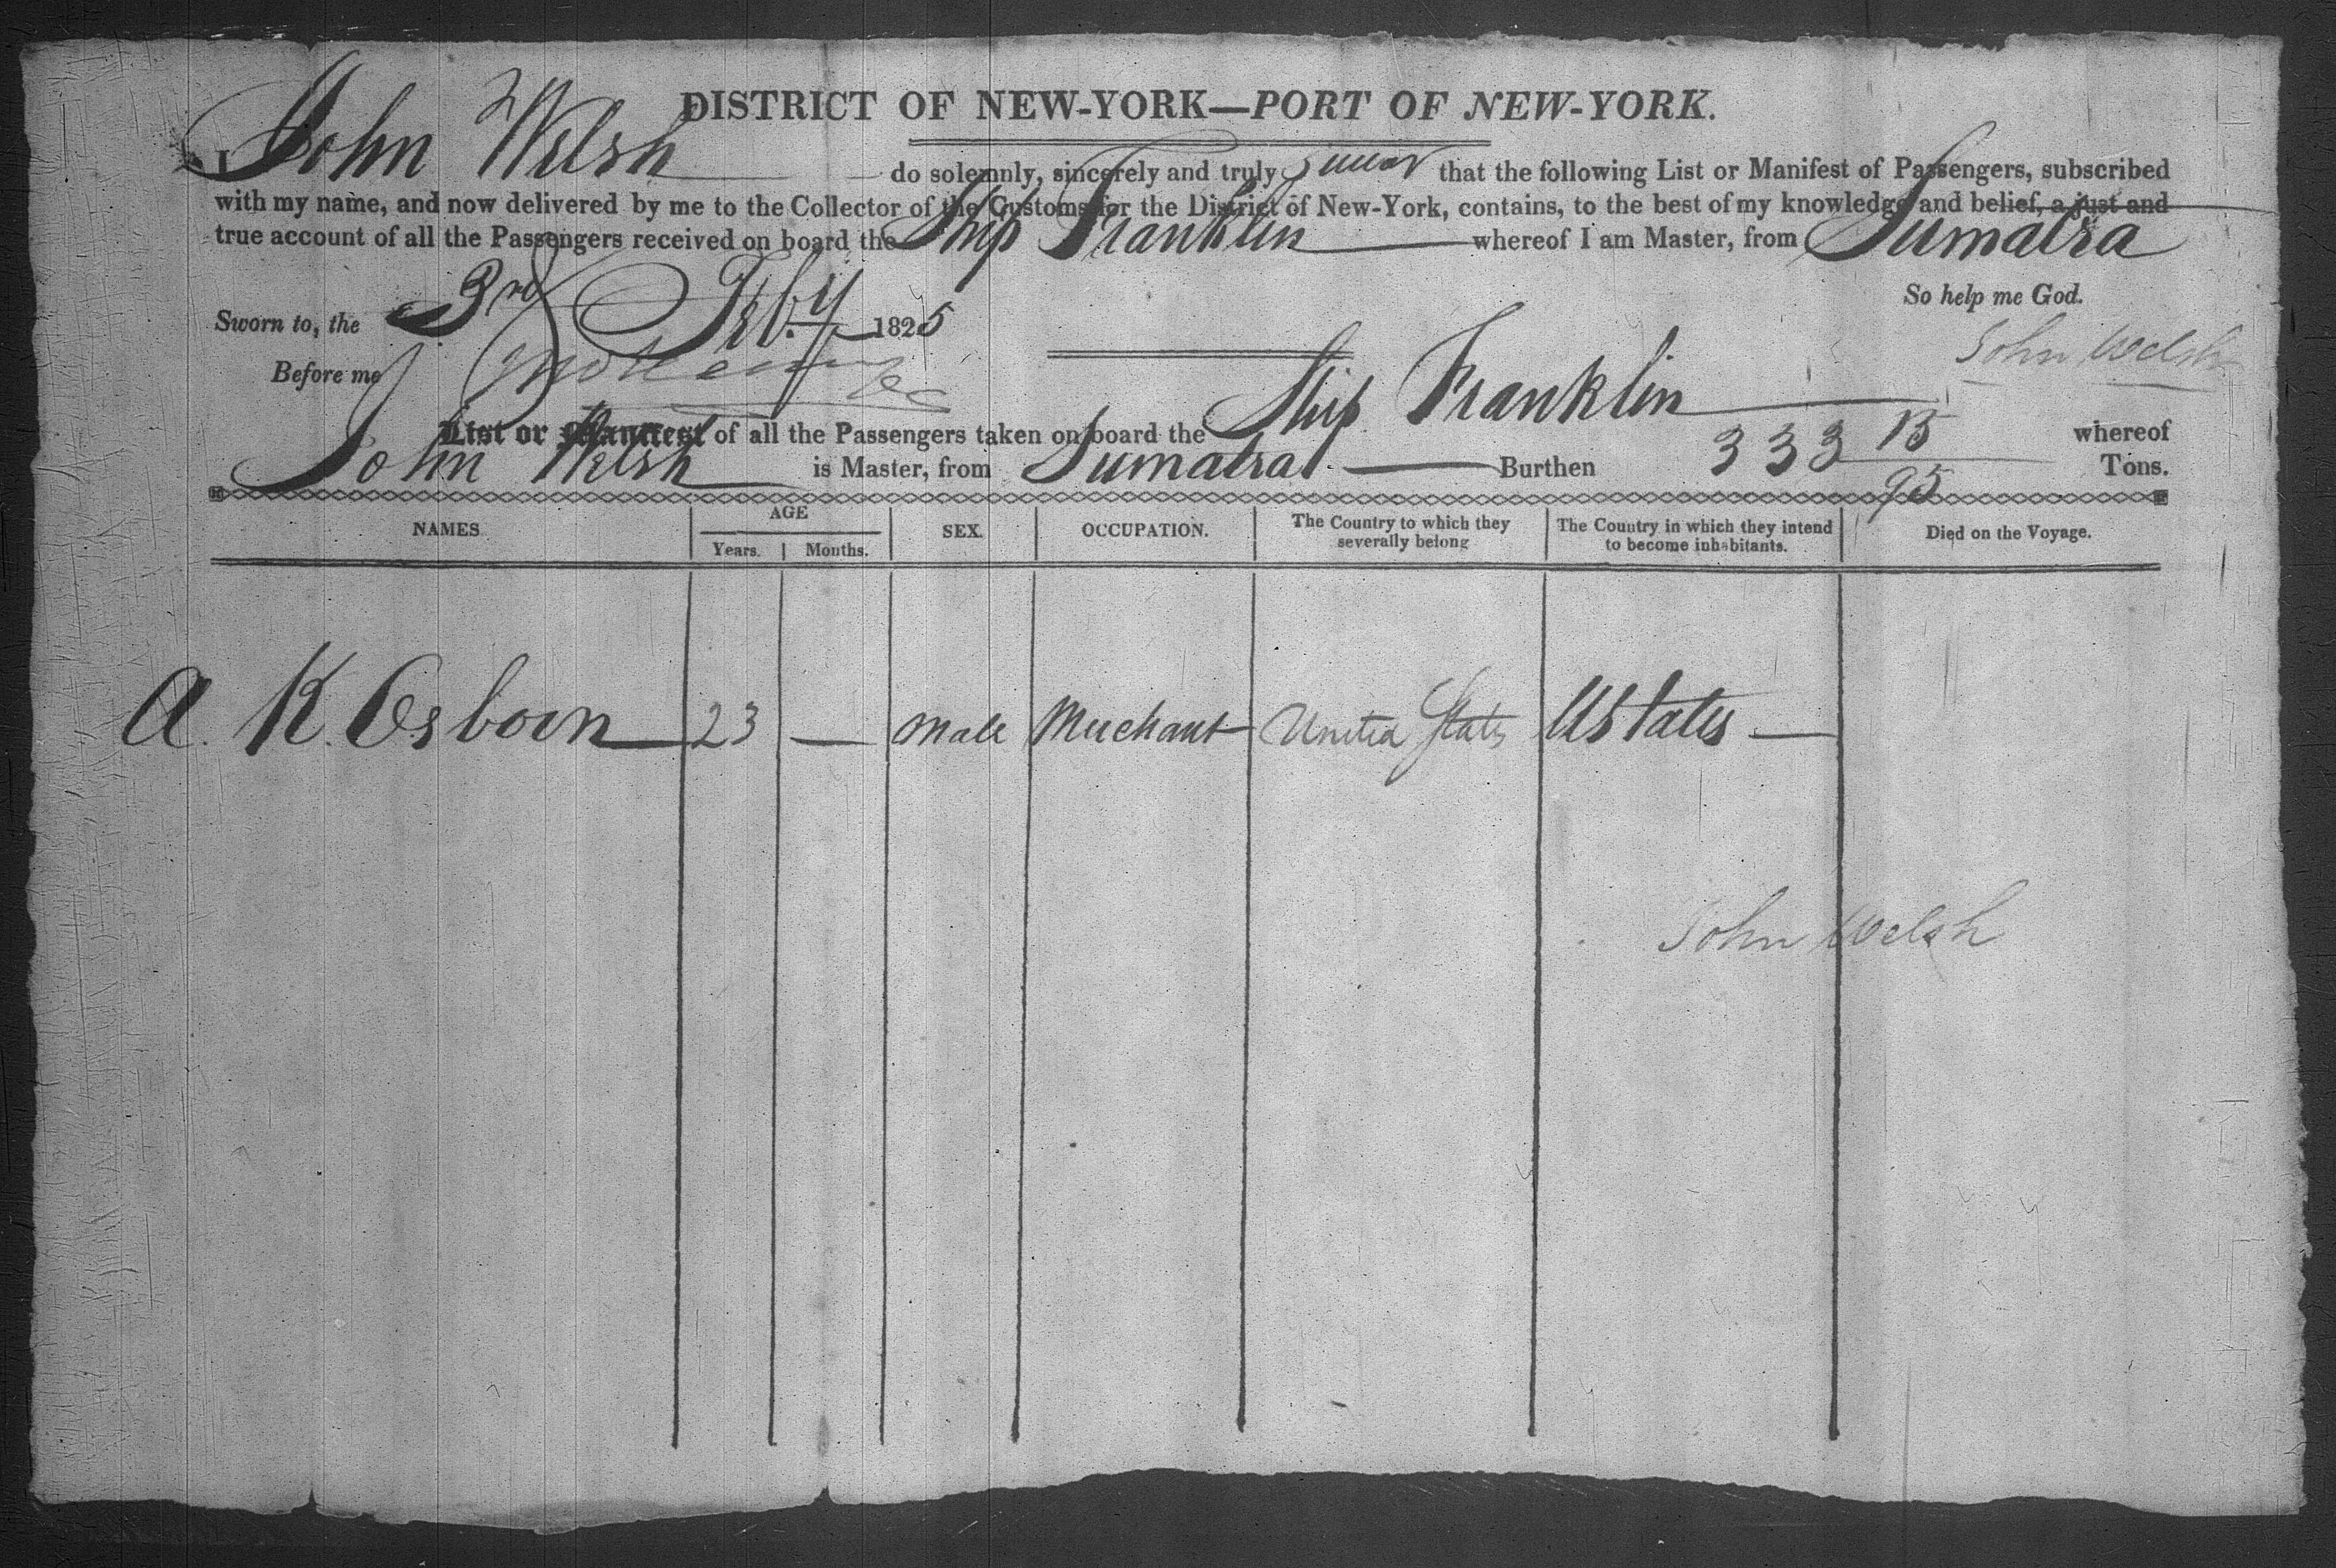 DISTRICT OF NEW-YORK—PORT OF NEW-YORK.
I John Welsh do solemnly, sincerely and truly swear that the following List or Manifest of Passengers, subscribed
with my name, and now delivered by me to the Collector of the Customs for the District of New-York, contains, to the best of my knowledge and belief, a just and
true account of all the Passengers received on board the Ship Franklin whereof I am Master, from Sumatra
So help me God.
Sworn to, the 3rd Feby 1825
John Welsh
Before me
List or Manifest of all the Passengers taken on board the Ship Franklin whereof
John Welsh is Master, from Sumatra Burthen 333 15/95 Tons.
NAMES AGE Years. Months. SEX. OCCUPATION. The Country to which they severally belong The Country in which they intend to become inhabitants. Died on the Voyage.
A. K. Osborn 23 — Male Merchant United States UStates —
John Welsh